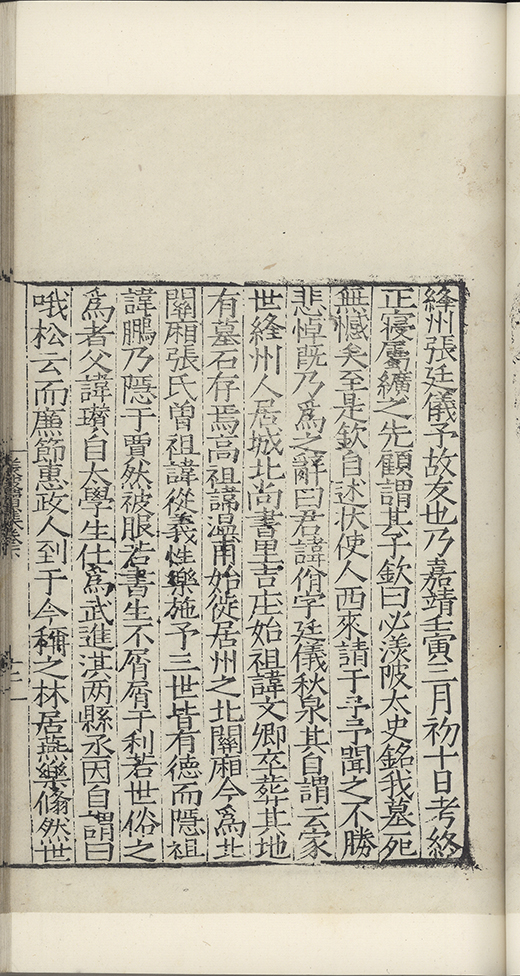 絳州張廷儀予故友也乃嘉靖壬寅二月初十日考終
正寢屬纊之先顧謂其子欽曰必渼陂太史銘我墓死
無憾矣至是欽自述狀使人西來請于予予聞之不勝
悲悼旣乃爲之辭曰君諱佾字廷儀秋泉其自謂云家
世絳州人居城北尚書里吉庄始祖諱文卿卒葬其地
有墓石存焉高祖諱溫甫始徙居州之北關廂今爲北
關廂張氏曾祖諱從義性樂施予三世皆有德而隱祖
諱鵬乃隱于賈然被服若書生不屑屑于利若世俗之
爲者父諱瓚自太學生仕爲武進淇两縣丞因自謂曰
哦松云而廉節惠政人到于今稱之林居燕樂翛然世